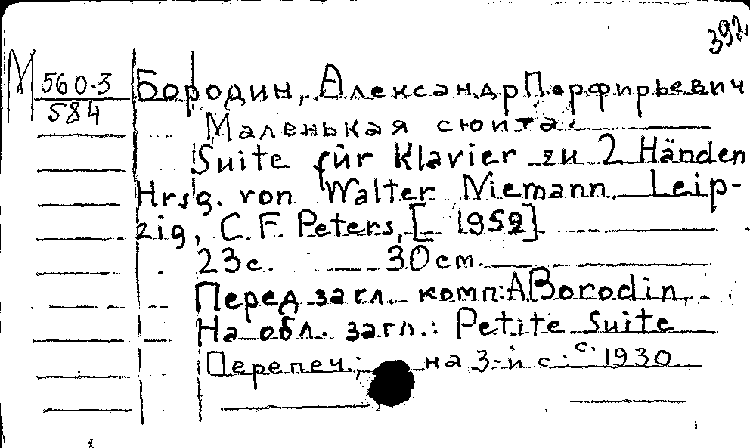 392
М 560-3
584
Бородин, Александр Порфирьевич
Маленькая сюита.
Suite für Klavier zu 2 Händen
Hrsg. von Walter Niemann. Leip-
zig, C. F. Peters, [1952]
23 с. 30 cm.
Перед загл. комп.: A Borodin
На обл. загл.: Petite Suite
Перепеч.: на 3-й с.: с. 1930